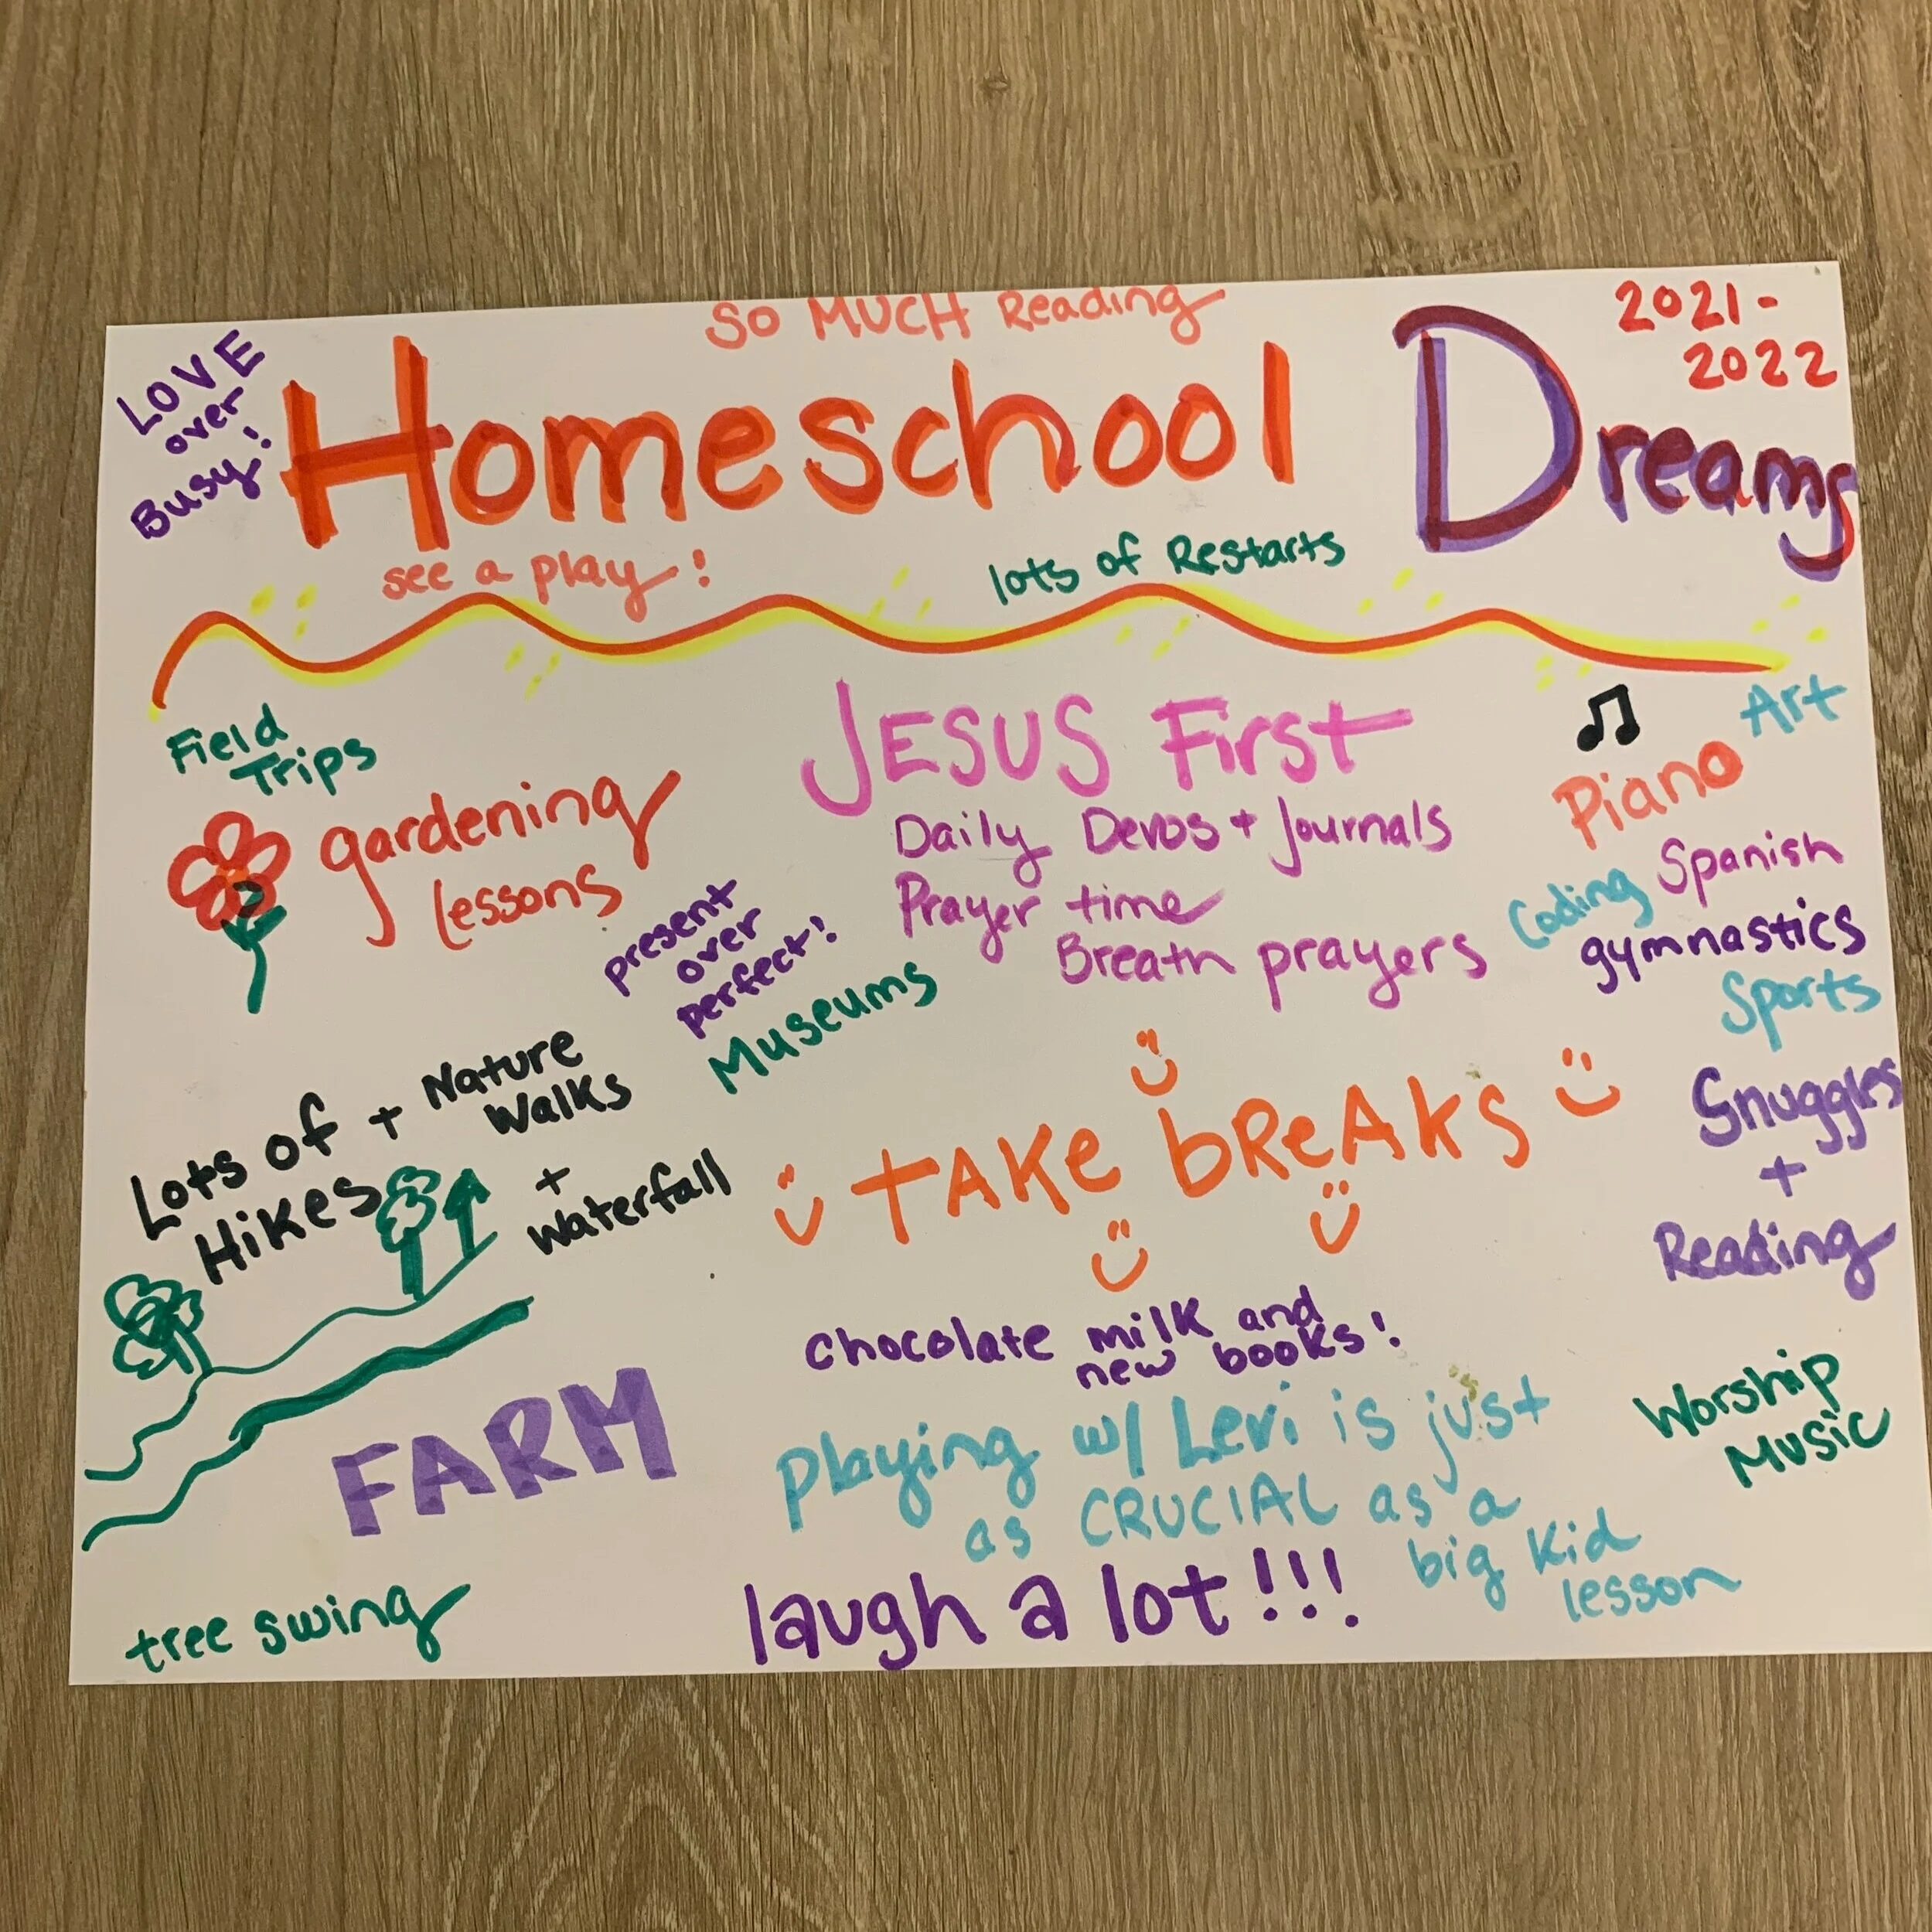 SO MUCH Reading
2021-
2022
LOVE
over
Busy!
Homeschool Dreams
see a play!
lots of Restarts
Field
Trips
gardening
lessons
JESUS First
Daily Devos + Journals
Prayer time
Breath prayers
Art
Piano
Spanish
Coding
gymnastics
Sports
present
over
perfect!
Museums
Lots of + Nature
Walks
Hikes
+
Waterfall
TAKe bReAkS
Snuggles
+
Reading
Chocolate milk and
new books!
FARM
Playing w/ Levi is just
as CRUCIAL as a
big kid
lesson
Worship
Music
tree swing
laugh a lot!!!